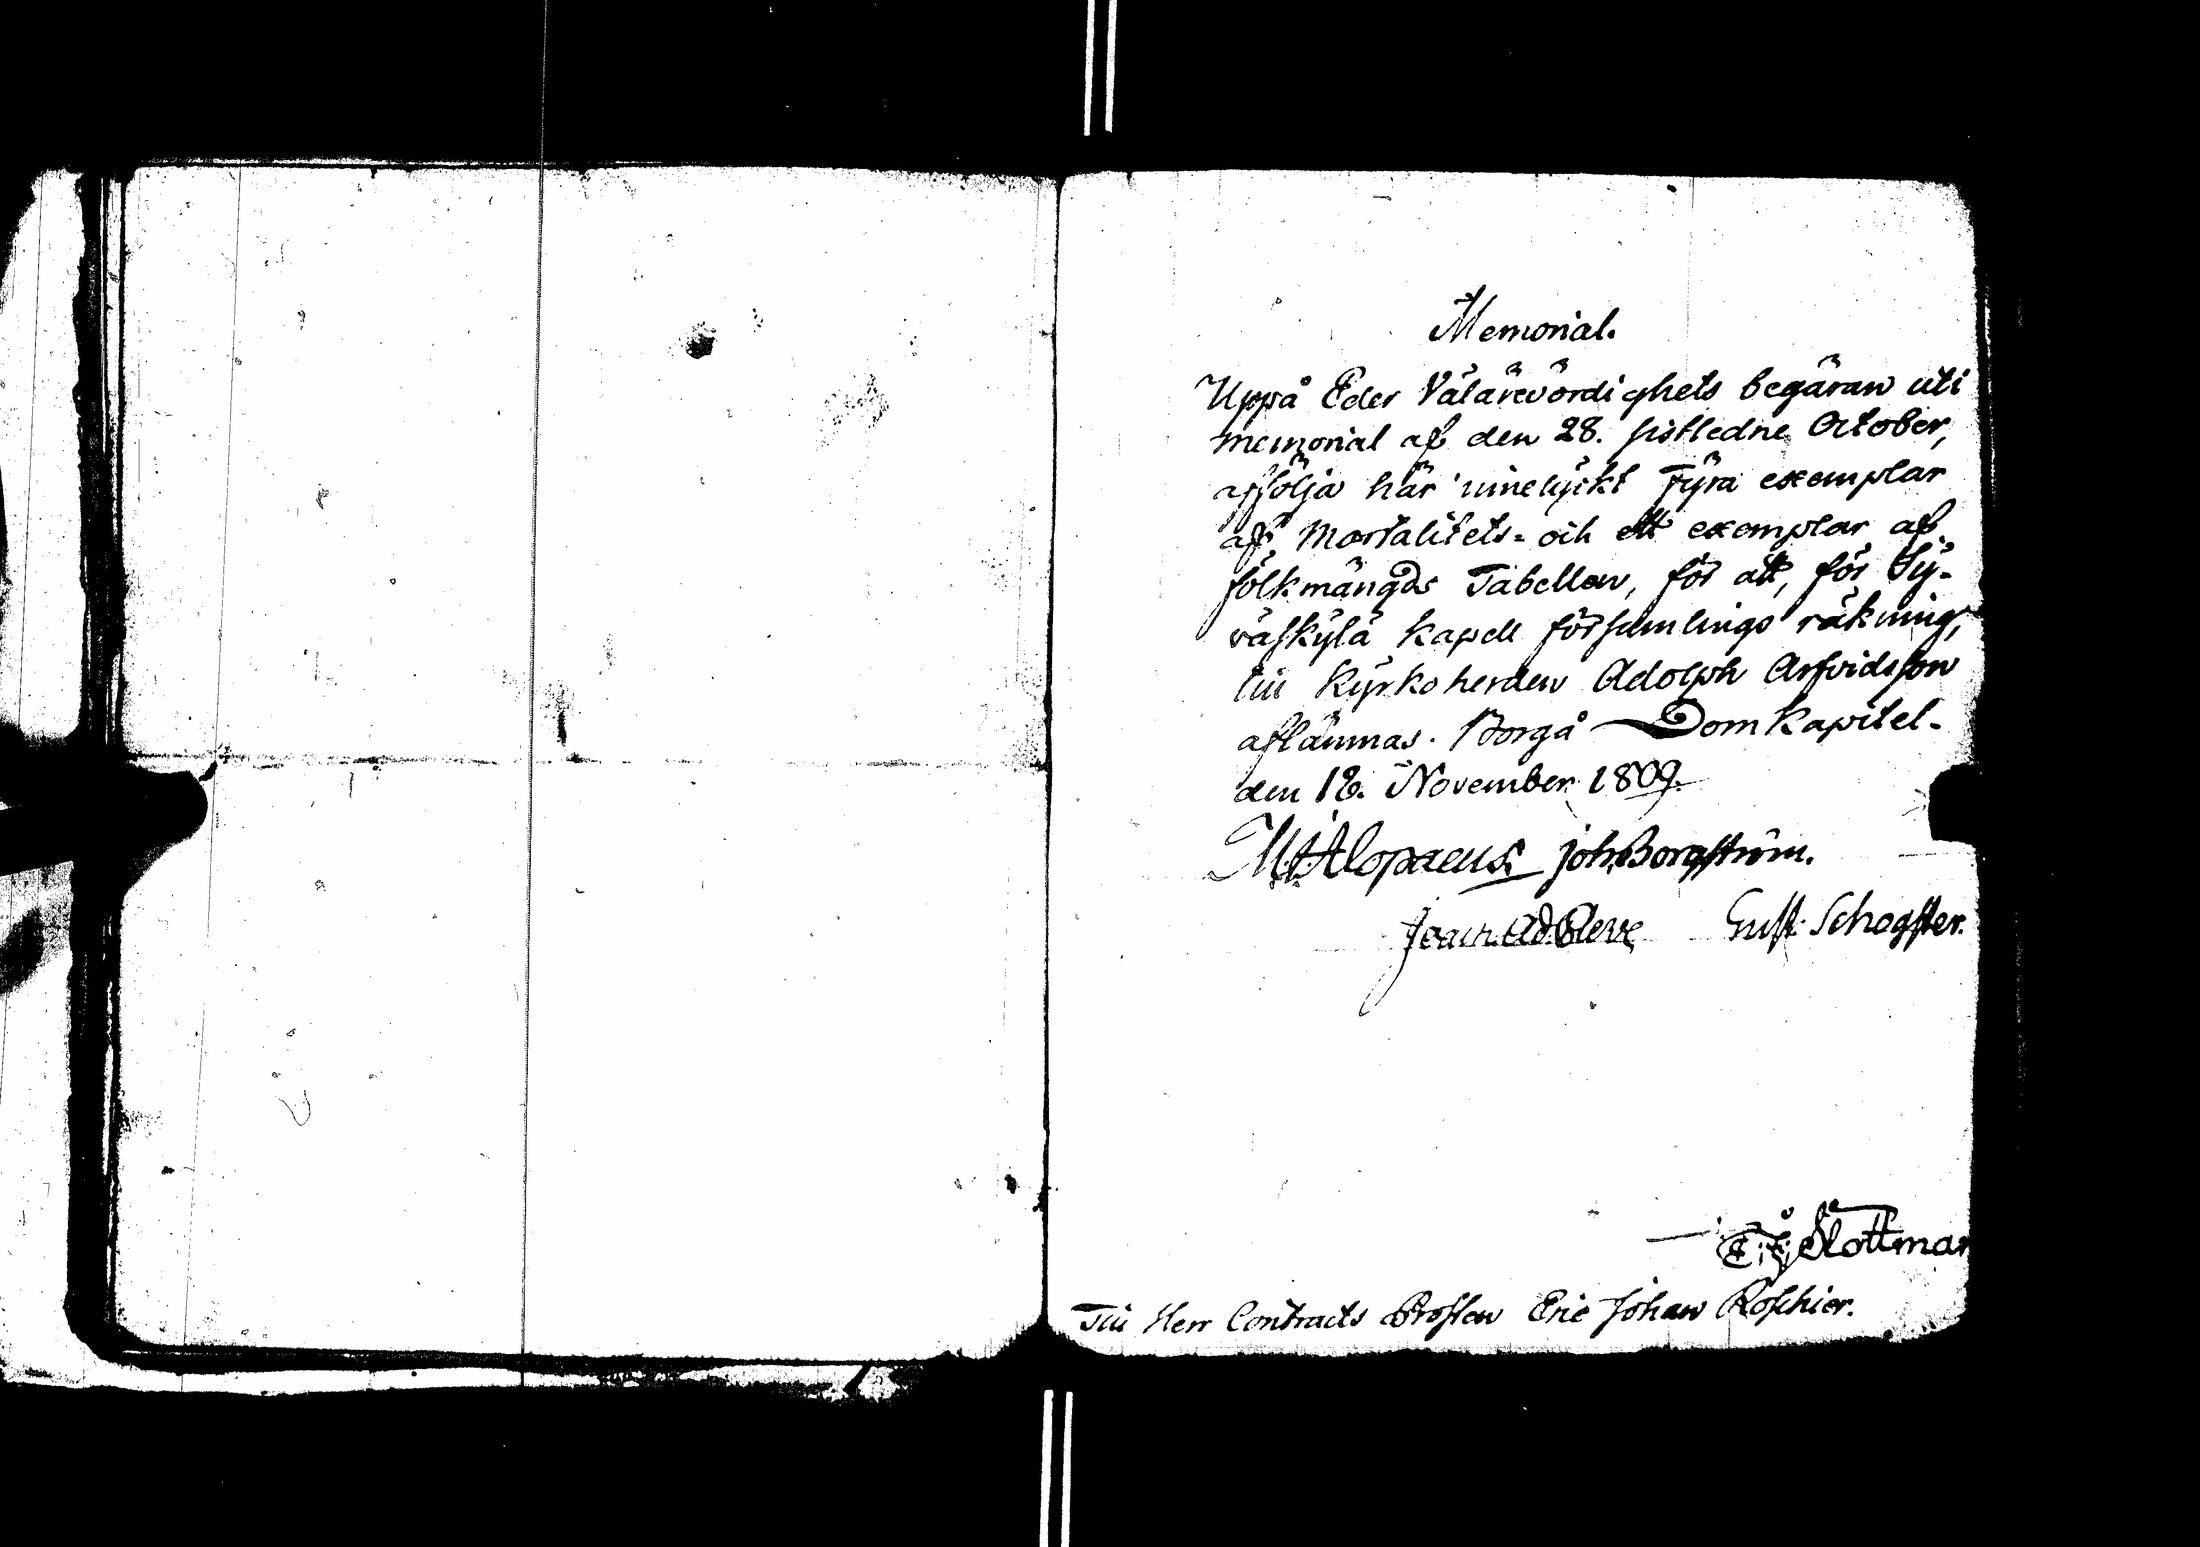 Memorial.
Uppå Eder Välärevördighets begäran uti
memorial af den 28. sistledne October,
afföljа här inneslyckt fyra exemplar
af Mortalitets- och ett exemplar af
folkmängds Tabellen, för att, för Jy-
väskylä kapell församlings räkning,
till Kyrkoherden Adolph Arfvidsson
aflämnas. Borgå Domkapitel
den 18. November 1809.
M. Alopaeus Joh. Borgström.
Joach. Ad. Cleve Gust. Schogster.
Slottman
Till Herr Contracts Prosten Eric Johan Roschier.